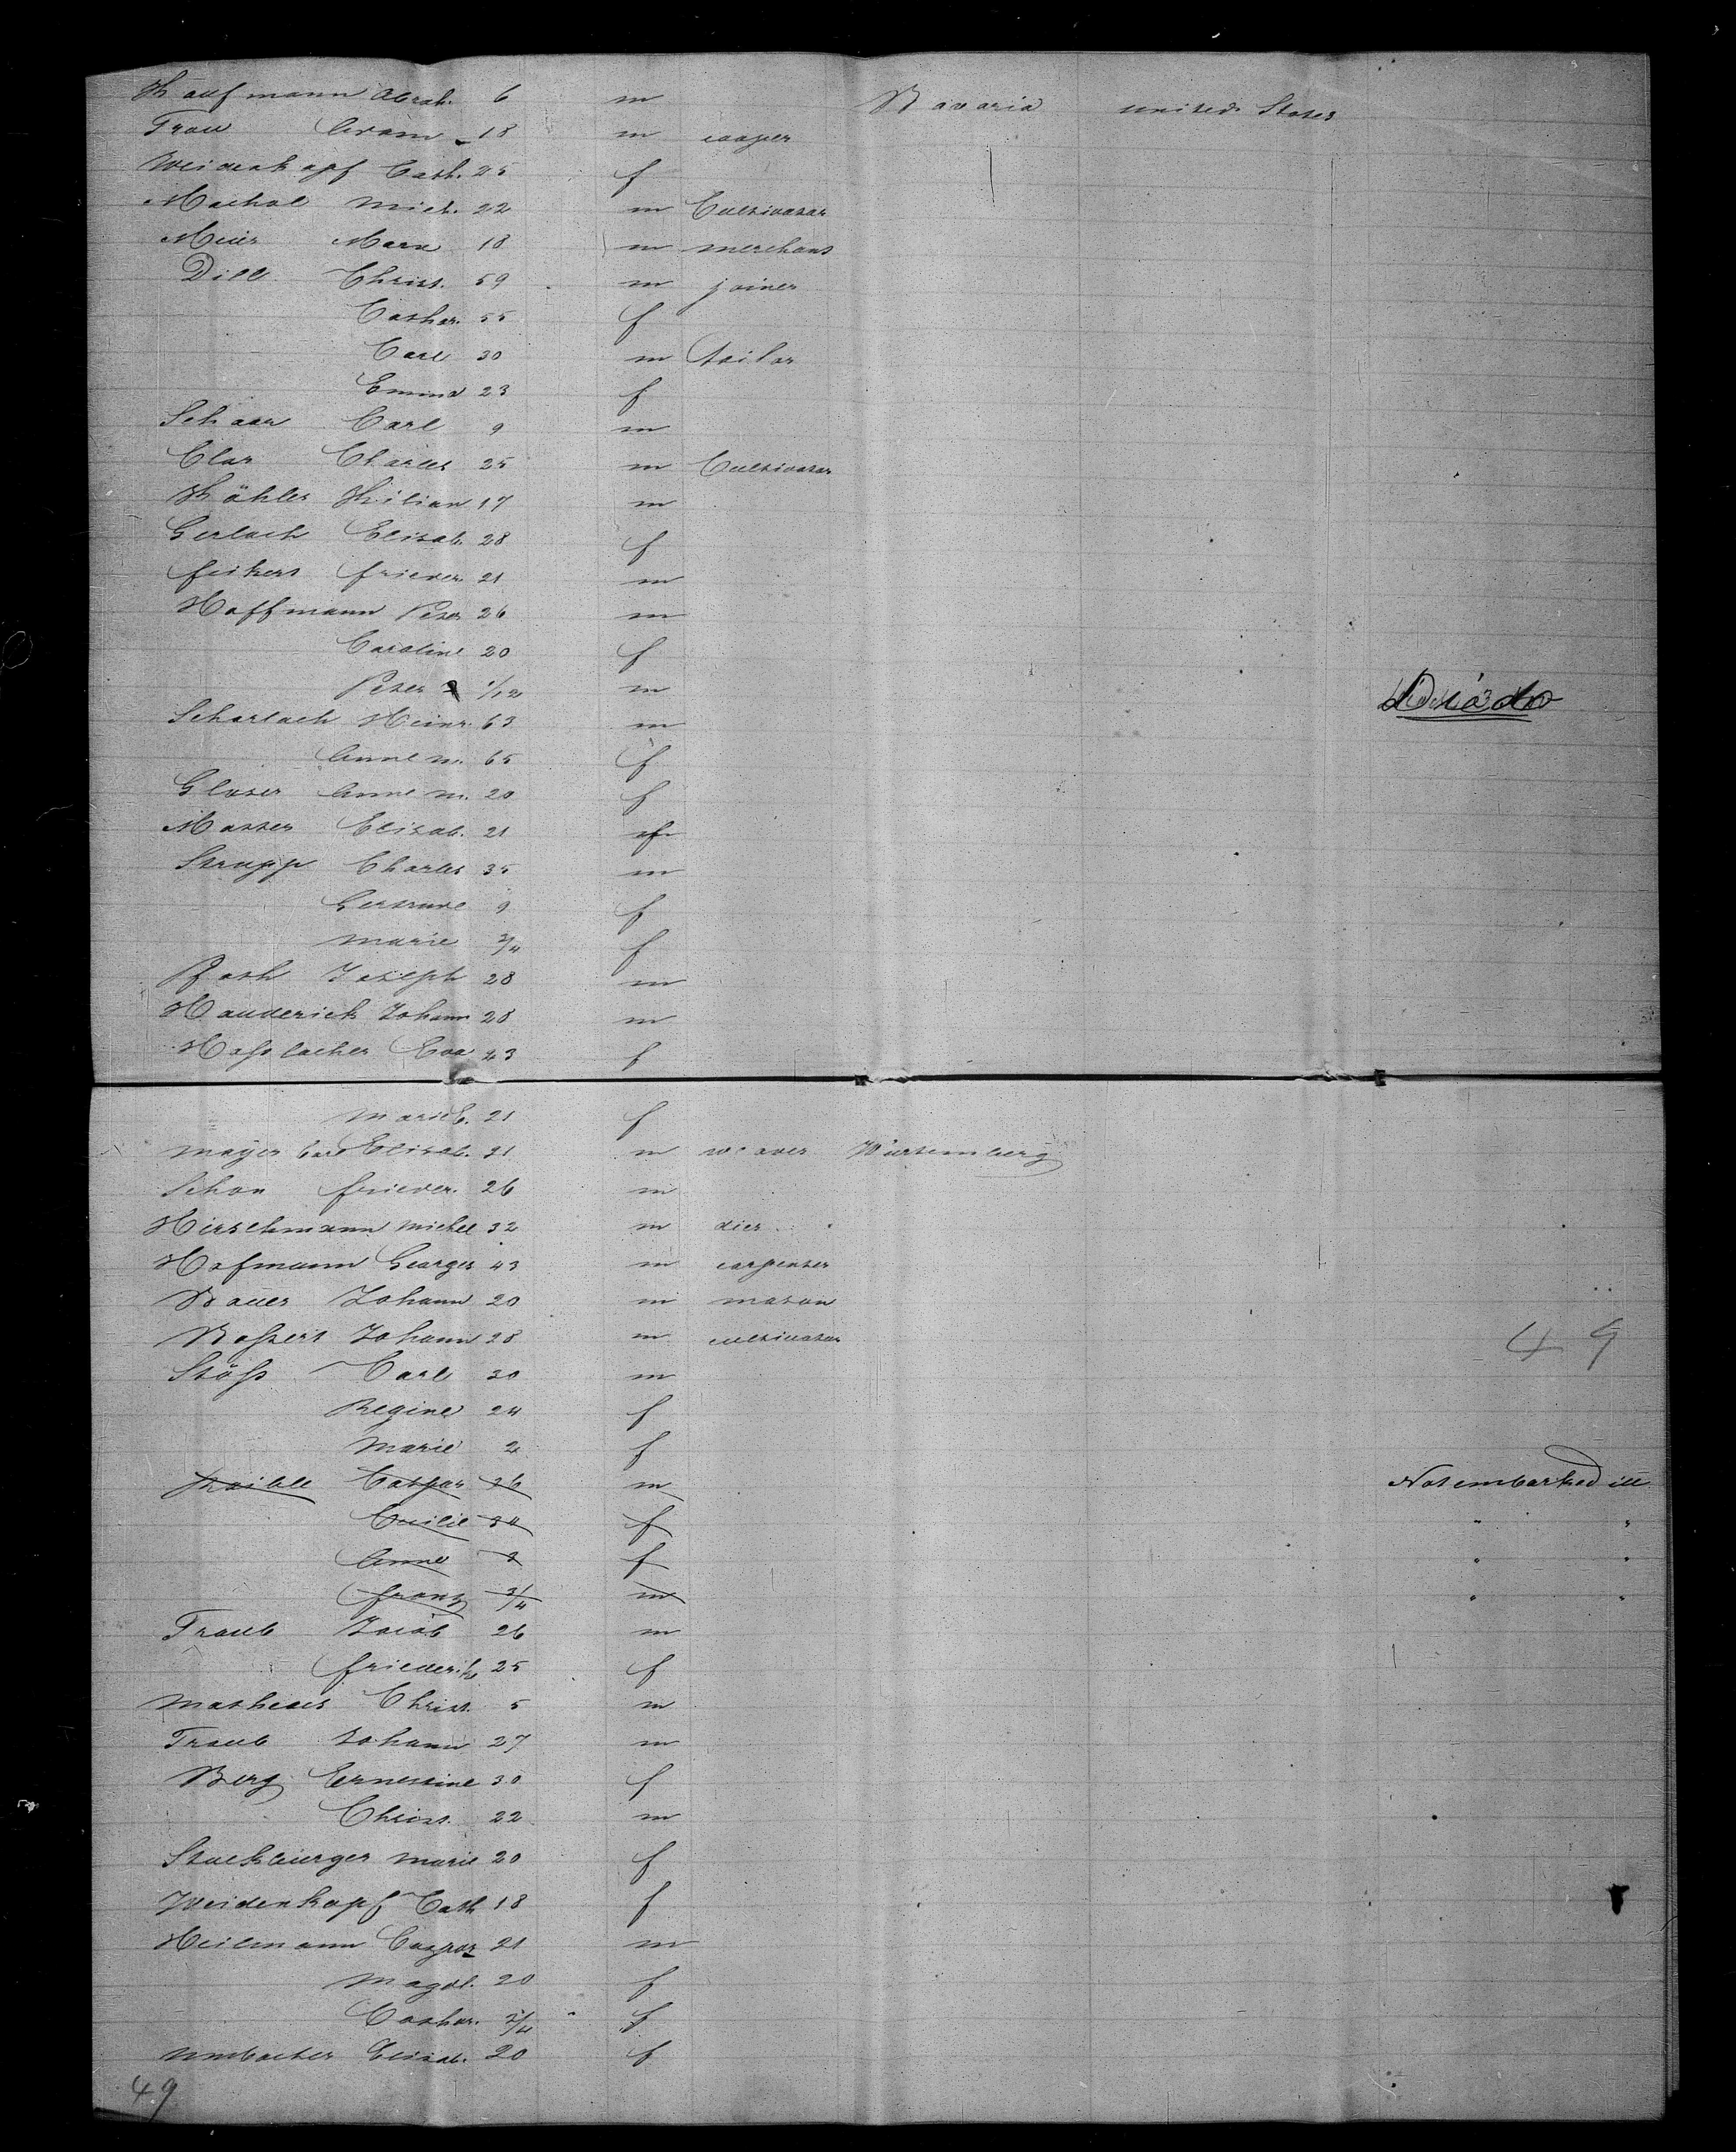 Kaufmann Abrah. 6 m Bavaria united States
Trau Adam 18 m cooper
Weidenkopf Cath. 25 f
Machol Mich. 22 m Cultivator
Meier Marx 18 m merchant
Dill Christ. 59 m joiner
Cathar. 55 f
Carl 30 m tailor
Emma 23 f
Schaar Carl 9 m
Clar Charles 25 m Cultivator
Köhler Kilian 17 m
Gerlach Elisab. 28 f
feikert frieder. 21 m
Hoffmann Peter 26 m
Caroline 20 f
Peter 1/12 m Died
Scharlach Heinr. 63 m
Anne m. 65 f
Glaser Anne m. 20 f
Matter Elisab. 21 f
Strupp Charles 35 m
Gertrude 9 f
marie 3/4 f
Roth Joseph 28 m
Hauderich Johann 28 m
Haßlacher Eva 23 f
marie C. 21 f
mayer Carl Elisab. 21 m weaver Würtemberg
Schon frieder. 26 m
Hirschmann michel 32 m dier
Hofmann Georges 43 m carpenter
Bauer Johann 20 m mason
Boßert Johann 28 m cultivator
49
Stöß Carl 30 m
Regine 24 f
Marie 2 f
Raible Caspar 36 m Not embarked ill
Cecilie 34 f " "
Anne 3 f " "
franz 3/4 m " "
Traub Jacob 26 m
friederike 25 f
matheus Christ. 5 m
Traub Johann 27 m
Berg Ernestine 30 f
Christ. 22 m
Stuckburger marie 20 f
Weidenkopf Cath 18 f
Heilmann Caspar 21 m
Magdl. 20 f
Cathar. 3/4 f
Umbacher Elisab. 20 f
49